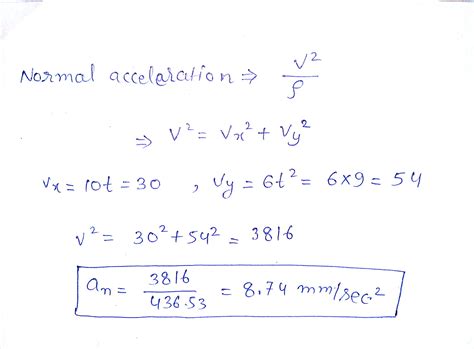 Normal accelaration ⇒ V²/ρ
⇒ V² = Vx² + Vy²
Vx = 10t = 30 , Vy = 6t² = 6×9 = 54
V² = 30² + 54² = 3816
an = 3816/436.53 = 8.74 mm/sec²